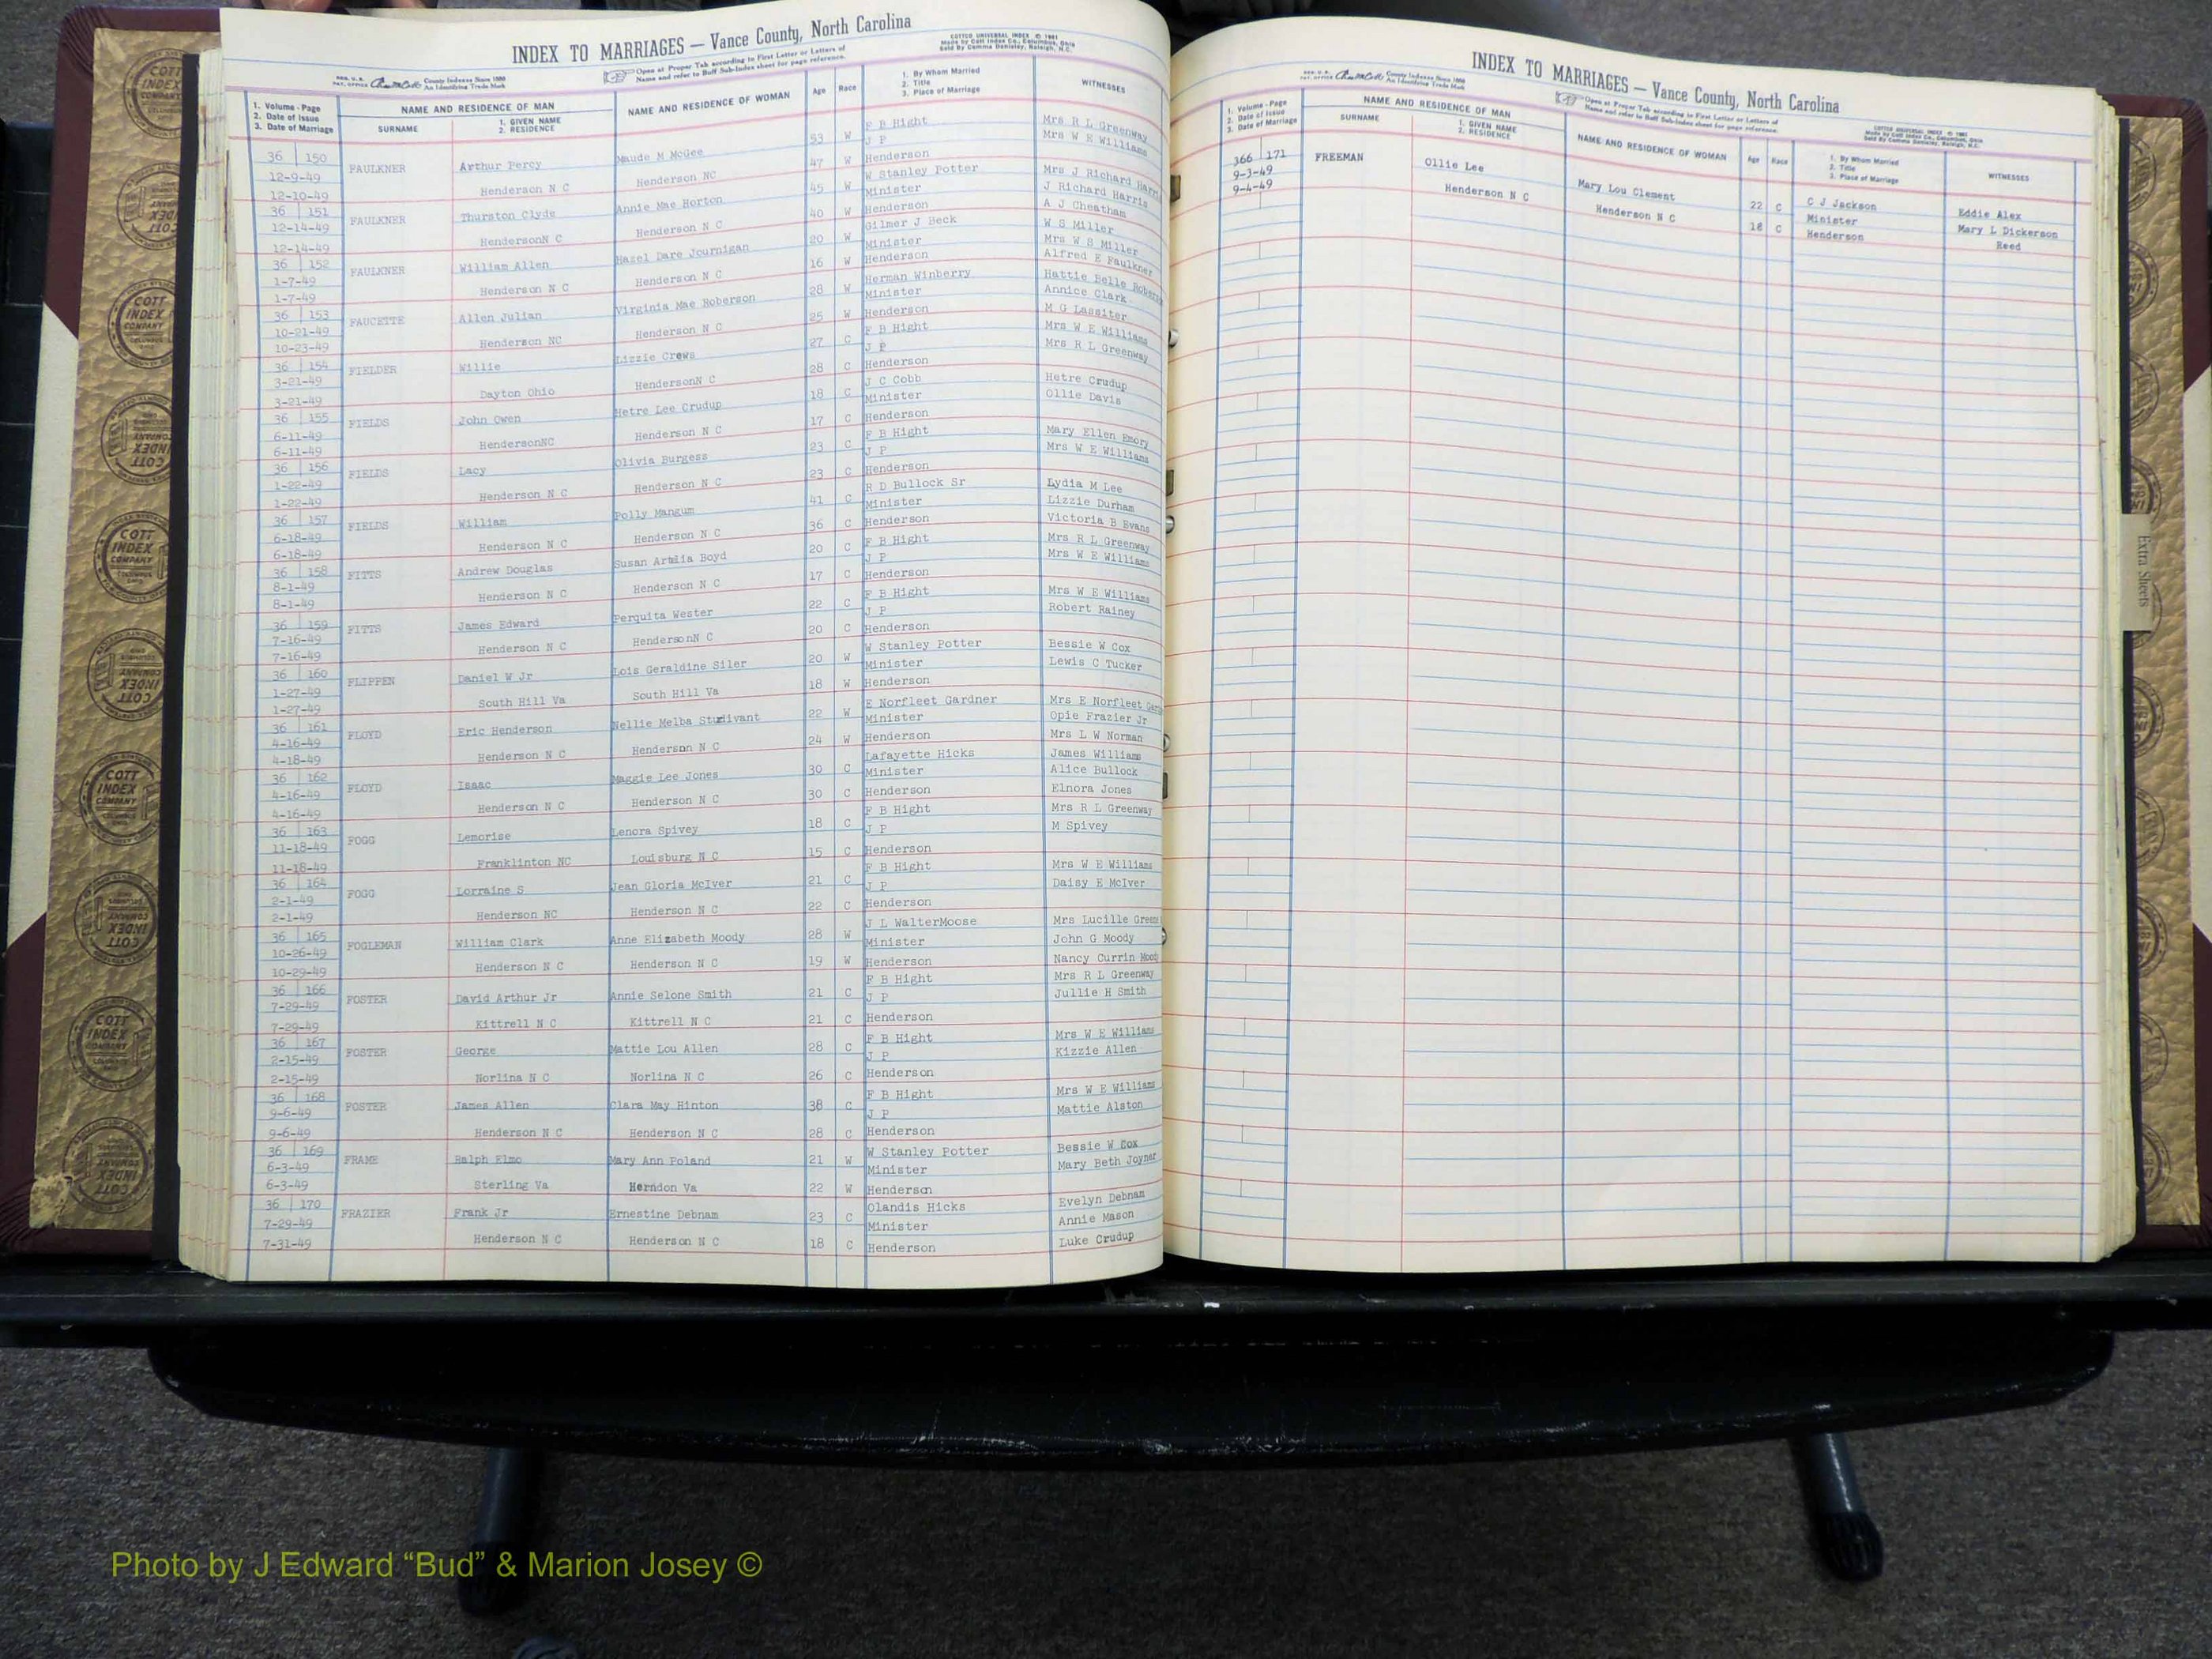 INDEX TO MARRIAGES — Vance County, North Carolina
COTTCO UNIVERSAL INDEX © 1961
Made by Cott Index Co., Columbus, Ohio
County Indexes Since 1888
An Identifying Trade Mark
Open at Proper Tab according to First Letter or Letters of
Name and refer to Buff Sub-Index sheet for page reference.
1. Volume - Page
2. Date of Issue
3. Date of Marriage
NAME AND RESIDENCE OF MAN
SURNAME
1. GIVEN NAME
2. RESIDENCE
NAME AND RESIDENCE OF WOMAN
Age
Race
1. By Whom Married
2. Title
3. Place of Marriage
WITNESSES
36 150 FAULKNER Arthur Percy Maude M McGee 53 W F B Hight Mrs R L Greenway
12-9-49 J P Mrs W E Williams
12-10-49 Henderson N C Henderson NC 47 W Henderson
36 151 FAULKNER Thurston Clyde Annie Mae Horton 45 W W Stanley Potter Mrs J Richard Harris
12-14-49 Minister J Richard Harris
12-14-49 HendersonN C Henderson N C 40 W Henderson A J Cheatham
36 152 FAULKNER William Allen Hazel Dare Journigan 20 W Gilmer J Beck W S Miller
1-7-49 Minister Mrs W S Miller
1-7-49 Henderson N C Henderson N C 16 W Henderson Alfred E Faulkner
36 153 FAUCETTE Allen Julian Virginia Mae Roberson 28 W Herman Winberry Hattie Belle
10-21-49 Minister Annice Clark
10-23-49 Henderson NC Henderson N C 25 W Henderson M G Lassiter
36 154 FIELDER Willie Lizzie Crews 27 C F B Hight Mrs W E Williams
3-21-49 J P Mrs R L Greenway
3-21-49 Dayton Ohio HendersonN C 28 C Henderson
36 155 FIELDS John Owen Hetre Lee Crudup 18 C J C Cobb Hetre Crudup
6-11-49 Minister Ollie Davis
6-11-49 HendersonNC Henderson N C 17 C Henderson
36 156 FIELDS Lacy Olivia Burgess 23 C F B Hight Mary Ellen Emory
1-22-49 J P Mrs W E Williams
1-22-49 Henderson N C Henderson N C 23 C Henderson
36 157 FIELDS William Polly Mangum 41 C R D Bullock Sr Lydia M Lee
6-18-49 Minister Lizzie Durham
6-18-49 Henderson N C Henderson N C 36 C Henderson Victoria B Evans
36 158 FITTS Andrew Douglas Susan Boyd 20 C F B Hight Mrs R L Greenway
8-1-49 J P Mrs W E Williams
8-1-49 Henderson N C Henderson N C 17 C Henderson
36 159 FITTS James Edward Perquita Wester 22 C F B Hight Mrs W E Williams
7-16-49 J P Robert Rainey
7-16-49 Henderson N C HendersonN C 20 C Henderson
36 160 FLIPPEN Daniel W Jr Lois Geraldine Siler 20 W W Stanley Potter Bessie W Cox
1-27-49 Minister Lewis C Tucker
1-27-49 South Hill Va South Hill Va 18 W Henderson
36 161 FLOYD Eric Henderson Nellie Melba 22 W E Norfleet Gardner Mrs E Norfleet
4-16-49 Minister Opie Frazier Jr
4-18-49 Henderson N C Henderson N C 24 W Henderson Mrs L W Norman
36 162 FLOYD Isaac Maggie Lee Jones 30 C Lafayette Hicks James Williams
4-16-49 Minister Alice Bullock
4-16-49 Henderson N C Henderson N C 30 C Henderson Elnora Jones
36 163 FOGG Lemorise Lenora Spivey 18 C F B Hight Mrs R L Greenway
11-18-49 J P M Spivey
11-18-49 Franklinton NC Louisburg N C 15 C Henderson
36 164 FOGG Lorraine S Jean Gloria McIver 21 C F B Hight Mrs W E Williams
2-1-49 J P Daisy E McIver
2-1-49 Henderson NC Henderson N C 22 C Henderson
36 165 FOGLEMAN William Clark Anne Elizabeth Moody 28 W J L WalterMoose Mrs Lucille
10-26-49 Minister John G Moody
10-29-49 Henderson N C Henderson N C 19 W Henderson Nancy Currin Moody
36 166 FOSTER David Arthur Jr Annie Selone Smith 21 C F B Hight Mrs R L Greenway
7-29-49 J P Jullie H Smith
7-29-49 Kittrell N C Kittrell N C 21 C Henderson
36 167 FOSTER George Mattie Lou Allen 28 C F B Hight Mrs W E Williams
2-15-49 J P Kizzie Allen
2-15-49 Norlina N C Norlina N C 26 C Henderson
36 168 FOSTER James Allen Clara May Hinton 38 C F B Hight Mrs W E Williams
9-6-49 J P Mattie Alston
9-6-49 Henderson N C Henderson N C 28 C Henderson
36 169 FRAME Ralph Elmo Mary Ann Poland 21 W W Stanley Potter Bessie W Cox
6-3-49 Minister Mary Beth Joyner
6-3-49 Sterling Va Herndon Va 22 W Henderson
36 170 FRAZIER Frank Jr Ernestine Debnam 23 C Olandis Hicks Evelyn Debnam
7-29-49 Minister Annie Mason
7-31-49 Henderson N C Henderson N C 18 C Henderson Luke Crudup
INDEX TO MARRIAGES — Vance County, North Carolina
County Indexes Since 1888
An Identifying Trade Mark
Open at Proper Tab according to First Letter or Letters of
Name and refer to Buff Sub-Index sheet for page reference.
1. Volume - Page
2. Date of Issue
3. Date of Marriage
NAME AND RESIDENCE OF MAN
SURNAME
1. GIVEN NAME
2. RESIDENCE
NAME AND RESIDENCE OF WOMAN
Age
Race
1. By Whom Married
2. Title
3. Place of Marriage
WITNESSES
366 171 FREEMAN Ollie Lee Mary Lou Clement 22 C C J Jackson Eddie Alex
9-3-49 Minister Mary L Dickerson
9-4-49 Henderson N C Henderson N C 18 C Henderson Reed
Extra Sheets
COTT INDEX COMPANY
Photo by J Edward “Bud” & Marion Josey ©